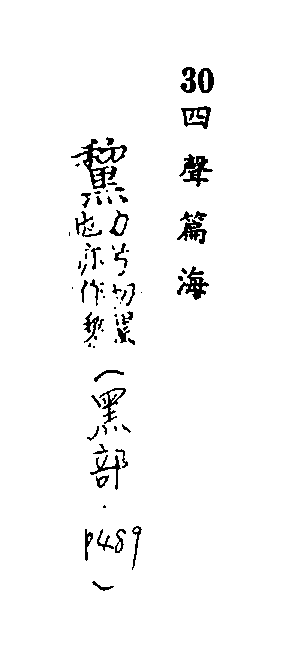 30 四聲篇海
力兮切黑
也亦作
(黑部．p489)